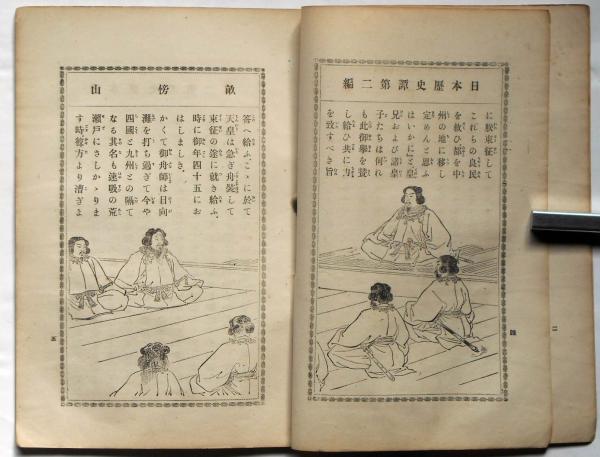 日本歴史譚第二編
に親東征して
これらの良民
を救ひ都を中
州の地に移し
定めんと思ふ
はいかに』と皇
兄および諸皇
子たちは何れ
も此御擧を賛
し給ひ共に力
を致すべき旨
四
畝傍山
答へ給ふ、こゝに於て
天皇は急ぎ舟裝して
東征の途に就き給ふ、
時に御年四十五にお
はしましき、
かくて御舟師は日向
灘を打ち過ぎて今や
四國と九州との隔て
なる其名も速吸の荒
瀬戸にさしかゝりま
す時彼方より漕ぎよ
五
二